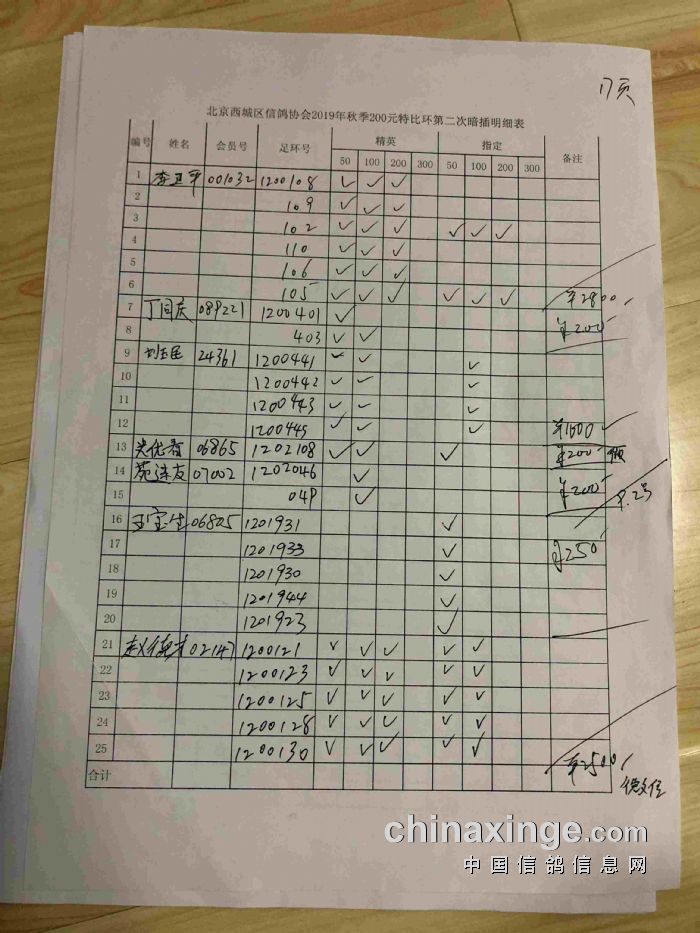 17页
北京西城区信鸽协会2019年秋季200元特比环第二次暗插明细表
编号 姓名 会员号 足环号 精英 指定 备注
50 100 200 300 50 100 200 300
1 李卫平 001032 1200108 ✓ ✓ ✓
2 109 ✓ ✓ ✓
3 102 ✓ ✓ ✓ ✓ ✓ ✓
4 110 ✓ ✓ ✓
5 106 ✓ ✓ ✓
6 105 ✓ ✓ ✓ ✓ ✓ ✓ ¥2800
7 丁同庆 089221 1200401 ✓ ¥200
8 403 ✓ ✓
9 24361 1200441 ✓ ✓ ✓
10 1200442 ✓ ✓ ✓
11 1200443 ✓ ✓ ✓
12 1200445 ✓ ✓ ✓ ¥1000 ✓
13 06865 1202108 ✓ ✓ ✓ ¥200
14 苑连友 07002 1202046 ✓ ¥200
15 049 ✓
16 王宝生 06805 1201931 ✓
17 1201933 ✓ ¥250
18 1201930 ✓
19 1201944 ✓
20 1201923 ✓
21 02147 1200121 ✓ ✓ ✓ ✓ ✓
22 1200123 ✓ ✓ ✓ ✓ ✓
23 1200125 ✓ ✓ ✓ ✓ ✓
24 1200128 ✓ ✓ ✓ ✓ ✓
25 1200130 ✓ ✓ ✓ ✓ ✓ ¥2500
合计
chinaxinge.com
中国信鸽信息网